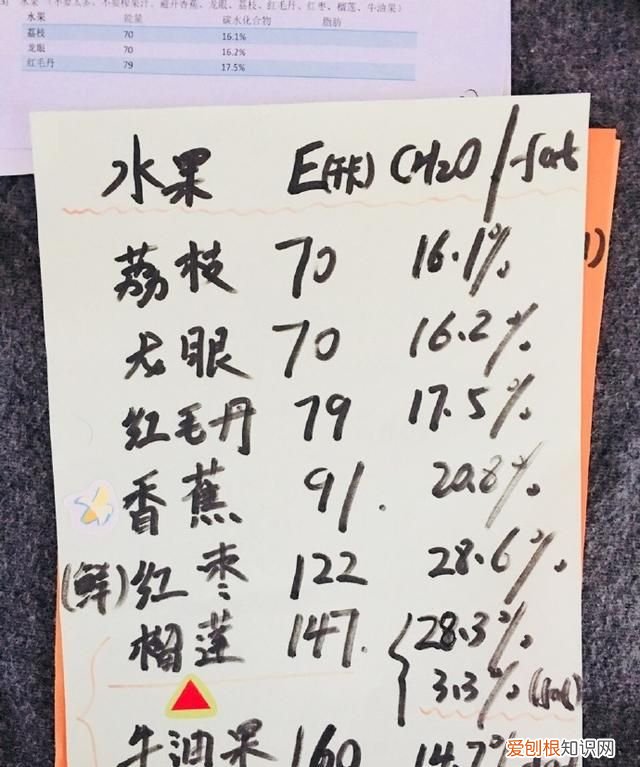 水果（不要太多，不要榨果汁，避开香蕉、龙眼、荔枝、红毛丹、红枣、榴莲、牛油果）
水果 能量 碳水化合物 脂肪
荔枝 70 16.1%
龙眼 70 16.2%
红毛丹 79 17.5%
水果 E(千卡) CH2O/fat
荔枝 70 16.1%
龙眼 70 16.2%
红毛丹 79 17.5%
香蕉 91. 20.8%
(鲜)红枣 122 28.6%
榴莲 147. 28.3%
3.3%(fat)
牛油果 160 14.7% fat
爱刨根知识网